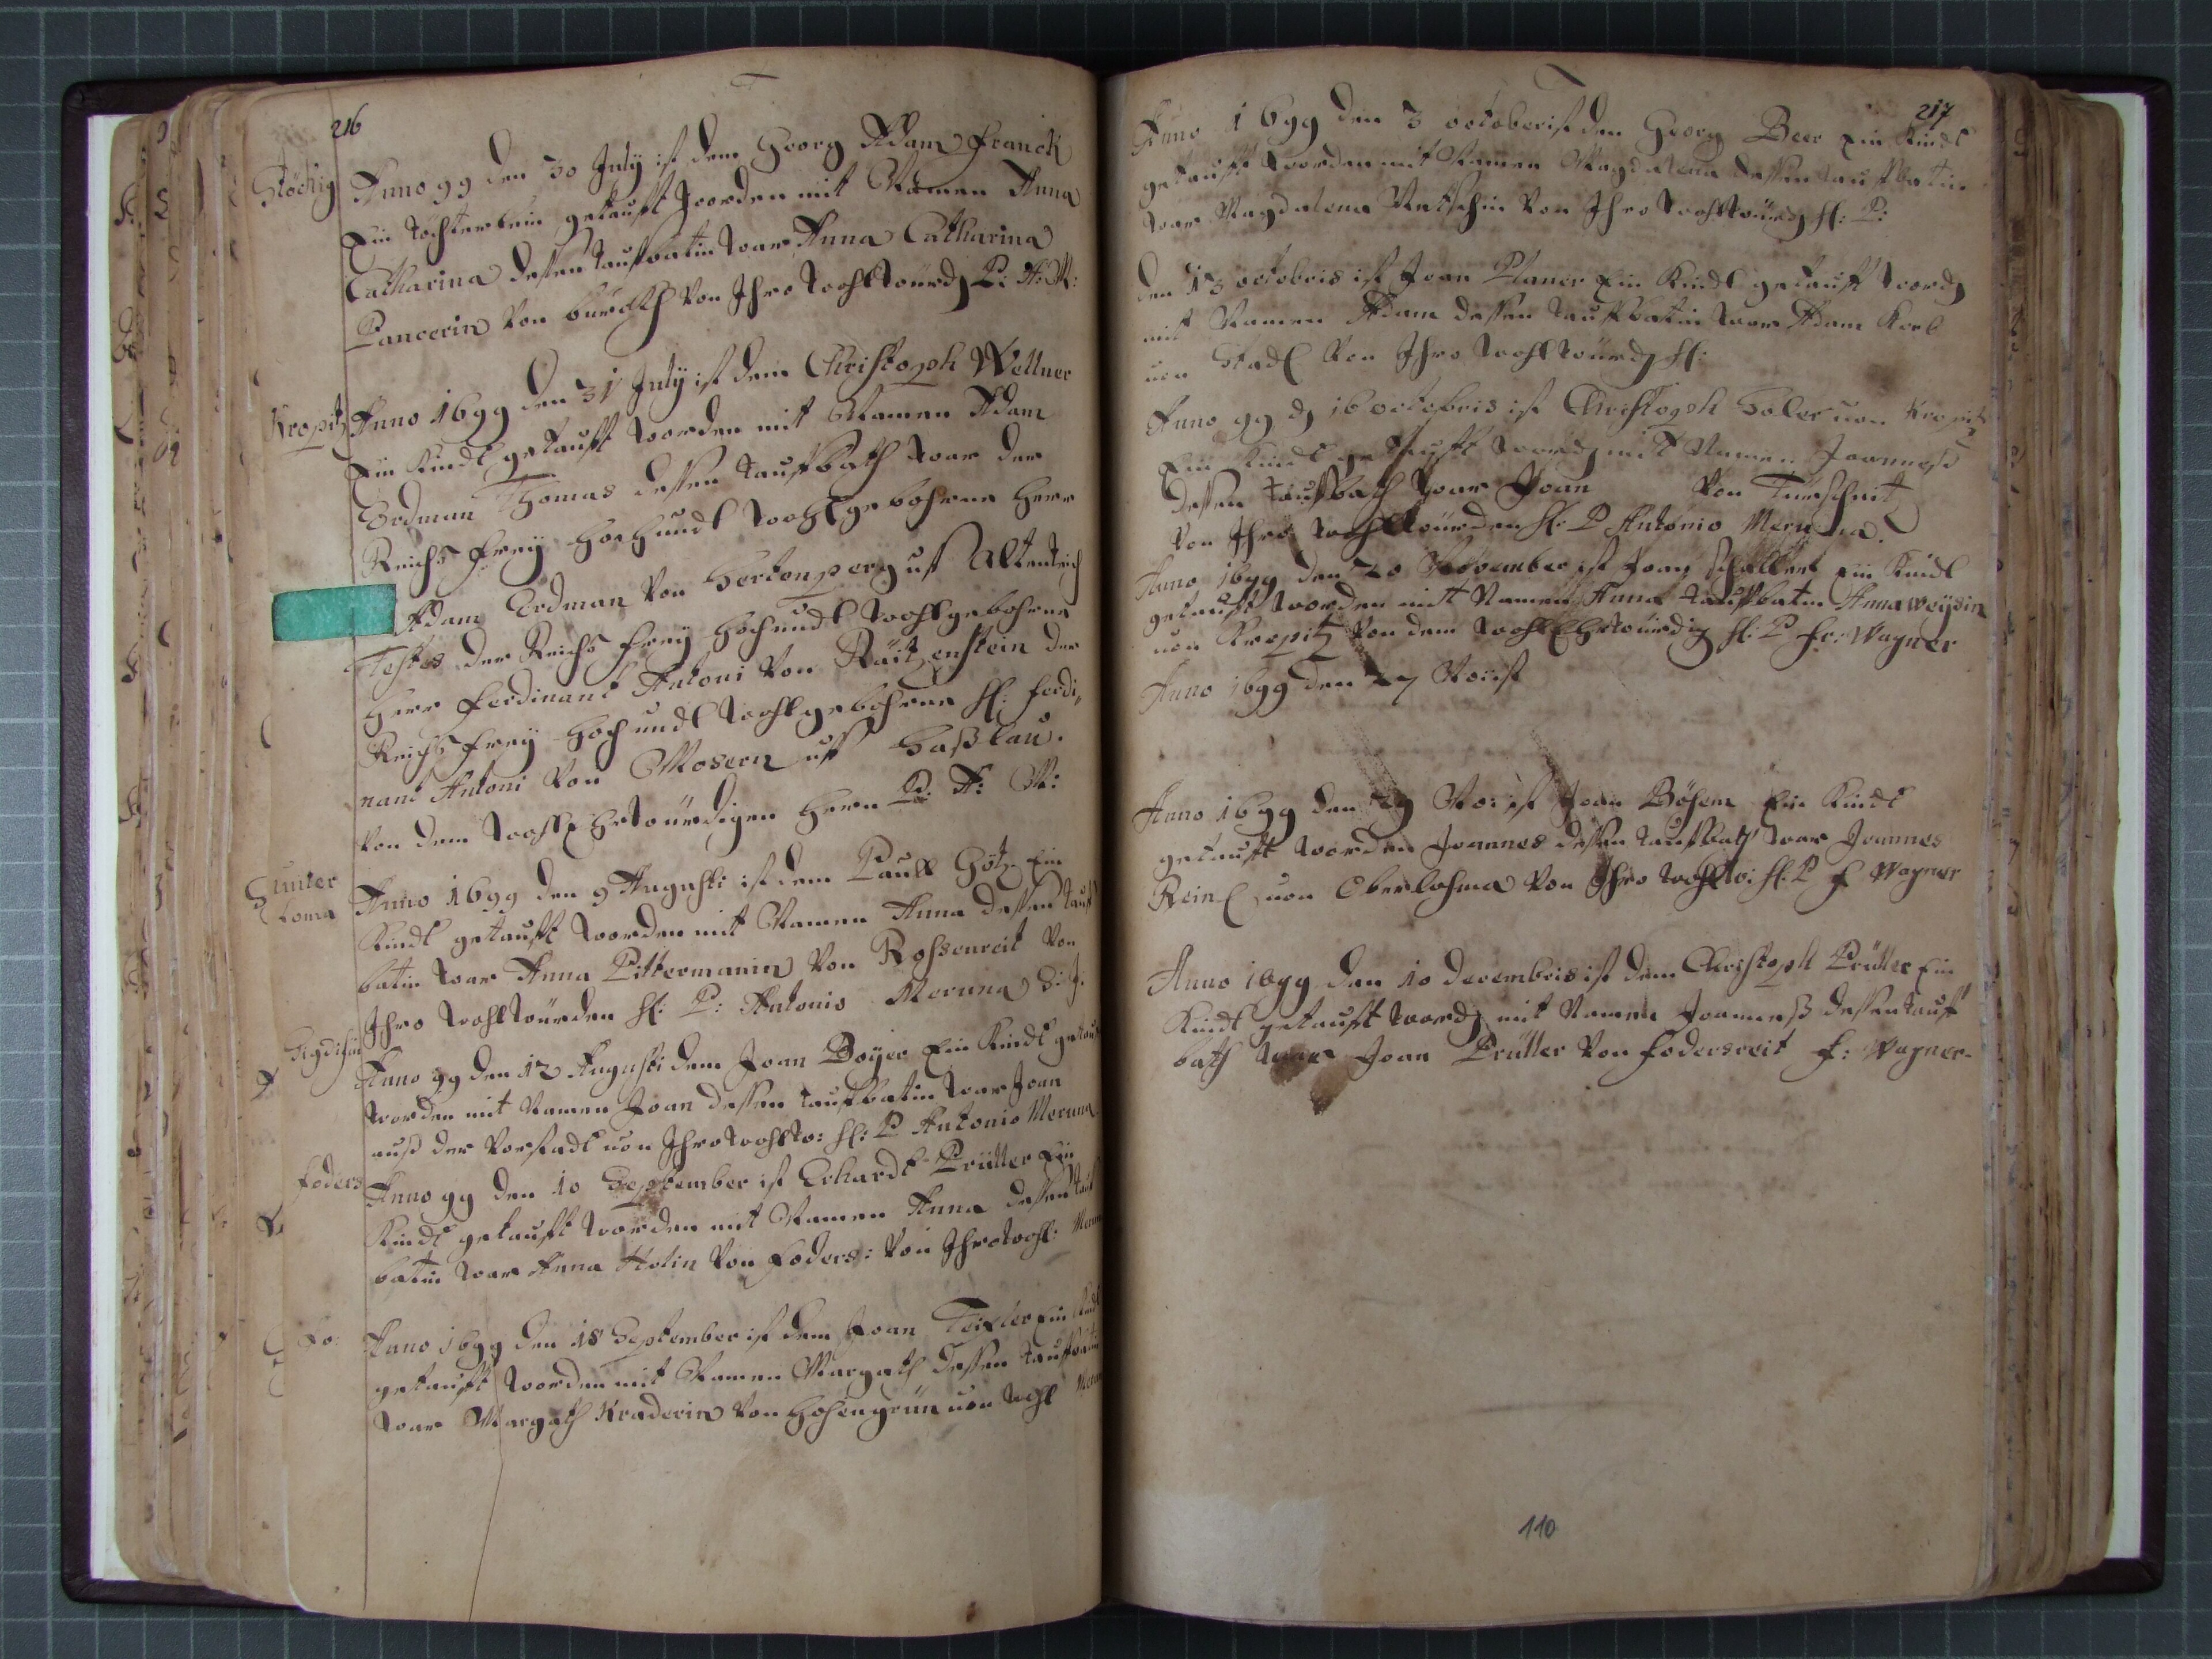 216
Stöckig
Anno 99 den 30 July ist dem Georg Adam Franck
Ein töchterlein getaufft worden mit Namen Anna
Catharina dessen taufbatin war Anna Catharina
Pancerin von von Ihro wohlwürd P: A: M:
Kropitz
Anno 1699 den 31 July ist dem Christoph Wettner
Ein Kindl getaufft worden mit Namen Adam
Erdman Thomas dessen taufbath war der
Reichs frey hoch undt wohlgebohrne Herr
Adam Erdman von Hertenperg uf Altenteich
Testes der Reichs frey hoch undt wohlgebohrne
Herr Ferdinant Antoni von Räitzenstein der
Reichs frey hoch undt wohlgebohrne H: Ferdi,,
nant Antoni von Mosern uf Haßlau.
von dem wohl Ehrwürdigen Herrn P: A: M:
Hunter
loma
Anno 1699 den 9 Augusti ist dem Paull Götz Ein
Kindl getaufft worden mit Namen Anna dessen tauf
batin war Anna Pittermanin von Rossenreit von
Ihro wohlwürden H: P: Antonio Meruna S: J.
Anno 99 den 12 Augusti dem Joan Boÿer Ein Kindl
worden mit Namen Joan dessen taufbatin war Joan
auß der Vorstadt von Ihro wohlw: H: P Antonio Meruna
Foders
Anno 99 den 10 September ist Erhardt Prütter Ein
Kindl getaufft worden mit Namen Anna dessen tauf
batin war Anna Holin von Foders: von Ihro wohl:
Fo:
Anno 1699 den 18 September ist dem Joan Teixler Ein Kindl
getaufft worden mit Namen Margath dessen taufbatin
war Margath Kraderin von Hohengrün von wohl
217
Anno 1699 den 3 october ist den Georg Beer Ein Kindl
getaufft worden mit Namen Magdalena dessen taufbatin
war Magdalena von Ihro wohlwürd H: P:
den 13 octobris ist Joan Planer Ein Kindl getaufft word
mit Namen Adam dessen taufbatin war Adam Korb
von Stadl von Ihro wohlwürd H:
Anno 99 d 16 octobris ist Christoph Holer von Kropitz
Ein Kindl getaufft word mit Namen Joanneß
dessen taufbath war Joan von Türschnitz
von Ihro wohlwürden H: P Antonio Meruna.
Anno 1699 den 20 November ist Joan Schaller Ein Kindl
getaufft worden mit Namen Anna taufbatin Anna Weÿdin
von Kropitz von dem wohl Ehrwürdig H: P Fr: Wagner
Anno 1699 den 27 No: ist
Anno 1699 den 29 No: ist Joan Böhem Ein Kindl
getaufft worden Joannes dessen taufbath war Joannes
Reinl von Oberlohma von Ihro wohlw: H: P F Wagner
Anno 1699 den 10 decembris ist dem Christoph Prütter Ein
Kindl getaufft word mit Namen Joanneß dessen tauf
bath war Joan Prütter von Fodersreit F: Wagner
110